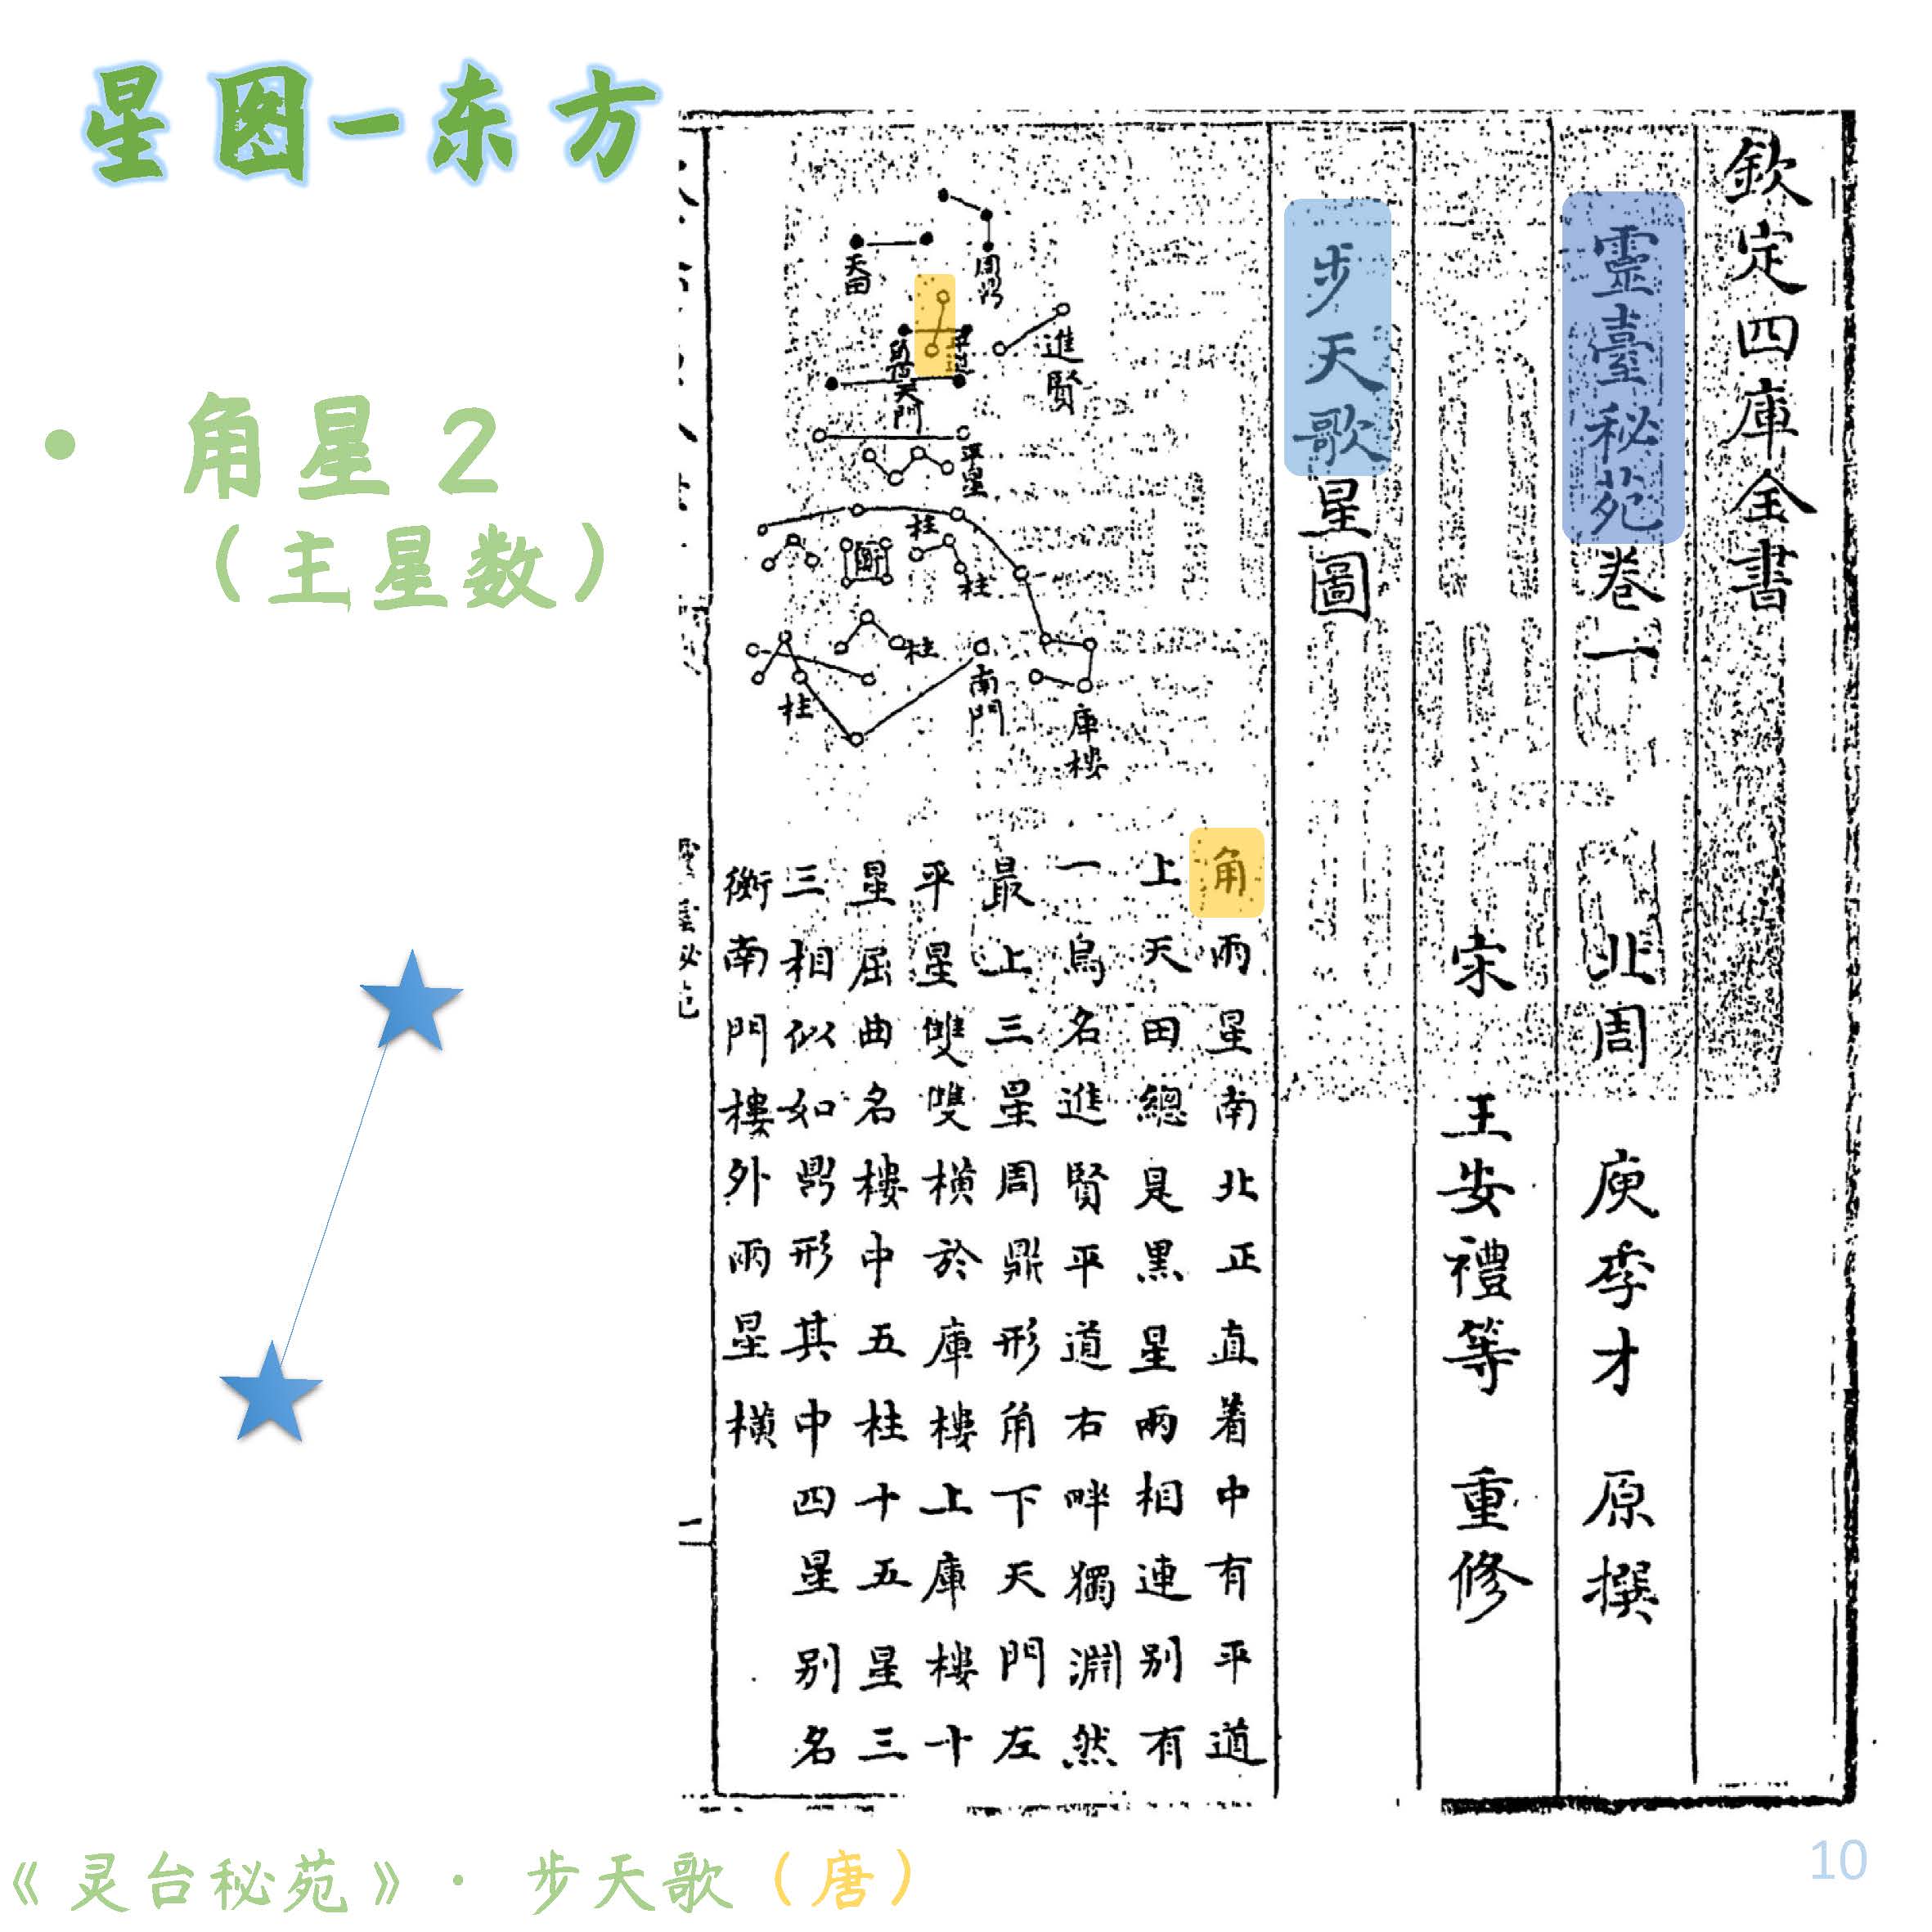 星图一东方
• 角星 2
（主星数）
欽定四庫全書
靈臺秘苑卷一 北周 庾季才 原撰
宋 王安禮等 重修
步天歌星圖
周鼎
天田
進
賢
平道
天門
平星
柱
衡
柱
柱
南門
柱
庫樓
角兩星南北正直着中有平道
上天田總是黒星兩相連别有
一烏名進賢平道右畔獨淵然
最上三星周鼎形角下天門左
平星雙雙横於庫樓上庫樓十
星屈曲名樓中五柱十五星三
三相似如鼎形其中四星别名
衡南門樓外兩星横
二
《灵台秘苑》· 步天歌（唐）
10